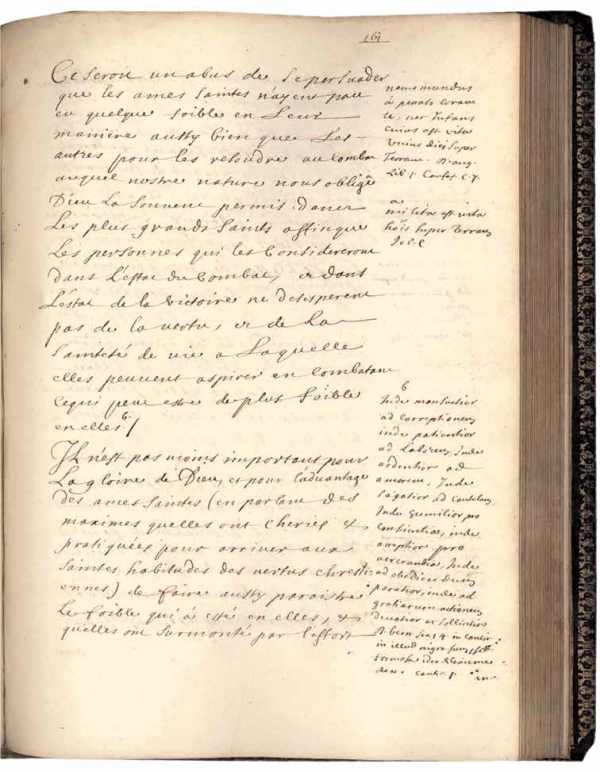 161
Ce seroit un abus de se persuader
que les ames saintes n'ayent pas
eu quelque foible en Leur
maniere aussy bien que Les
autres pour les resoudre au combat
auquel nostre nature nous oblige
Dieu La souvent permis dans
Les plus grands saints affinque
Les personnes qui les considereront
dans L'estat du combat, et dans
L'estat de la victoire ne desesperent
pas de la vertu, et de La
sainteté de vie a Laquelle
elles peuvent aspirer en combatant
ce qui peut estre de plus foible
en elles b
Il n'est pas moins important pour
La gloire de Dieu, et pour l'advantage
des ames saintes (en parlant des
maximes quelles ont cheries &
pratiquées pour arriver aux
saintes habitudes des vertus chresti-
ennes) de faire aussy paroistre
Le foible qui a esté en elles, &
quelles ont surmonté par l'effort
nemo mundus
a peccato coram
te, nec Infans
cuius est vita
unius diei super
Terram. D. aug.
Lib. 1. Confes. C. 7.
a
militia est vita
hois super Terram
Job.
b
Inde mansuetior
ad correptionem
inde patientior
ad Labores, Inde
ardentior ad
amorem, Inde
sagatior ad cautelam,
Inde humilior pro
conscientia, inde
amptior pro
verecundia, Inde
ad obediendum
paratior, inde ad
gratiarum actionem
devotior et sollicitior
D. bern. in cantic.
in illud nigra sum, sed
formosa
cantic. 1.